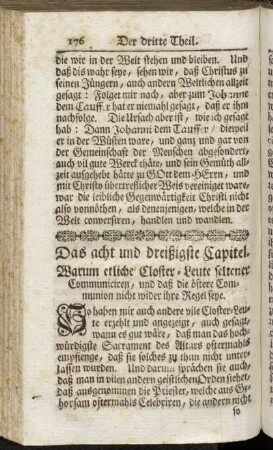 176 Der dritte Theil.
die wir in der Welt stehen und bleiben. Und
daß dis wahr seye, sehen wir, daß Christus zu
seinen Jüngern, auch andern Weltlichen allzeit
gesagt: Folget mir nach, aber zum Johanne
dem Tauffer hat er niemahl gesagt, daß er ihm
nachfolge. Die Ursach aber ist, wie ich gesagt
hab: Dann Johanni dem Tauffer / dieweil
er in der Wüsten ware, und ganz und gar von
der Gemeinschaft der Menschen abgesondert,
auch vil gute Werck thäte, und sein Gemüth all-
zeit aufgehebt hätte zu GOtt dem HErrn, und
mit Christo übertrefflicher Weis vereiniget ware,
war die leibliche Gegenwärtigkeit Christi nicht
also vonnöthen, als denenjenigen, welche in der
Welt conversiren, handlen und wandlen.
Das acht und dreißigste Capitel.
Warum etliche Closter-Leute seltener
Communiciren, und daß die öftere Com-
munion nicht wider ihre Regel seye.
So haben mir auch andere vile Closter-Leu-
te erzehlt und angezeigt, auch gesagt,
wann es gut wäre, daß man das hoch-
würdigste Sacrament des Altars oftermahls
empfienge, daß sie solches zu thun nicht unter-
lassen wurden. Und darum sprächen sie auch,
daß man in vilen andern geistlichen Orden siehet,
daß ausgenommen die Priester, welche aus Ge-
horsam oftermahls Celebriren, die andern nicht
so